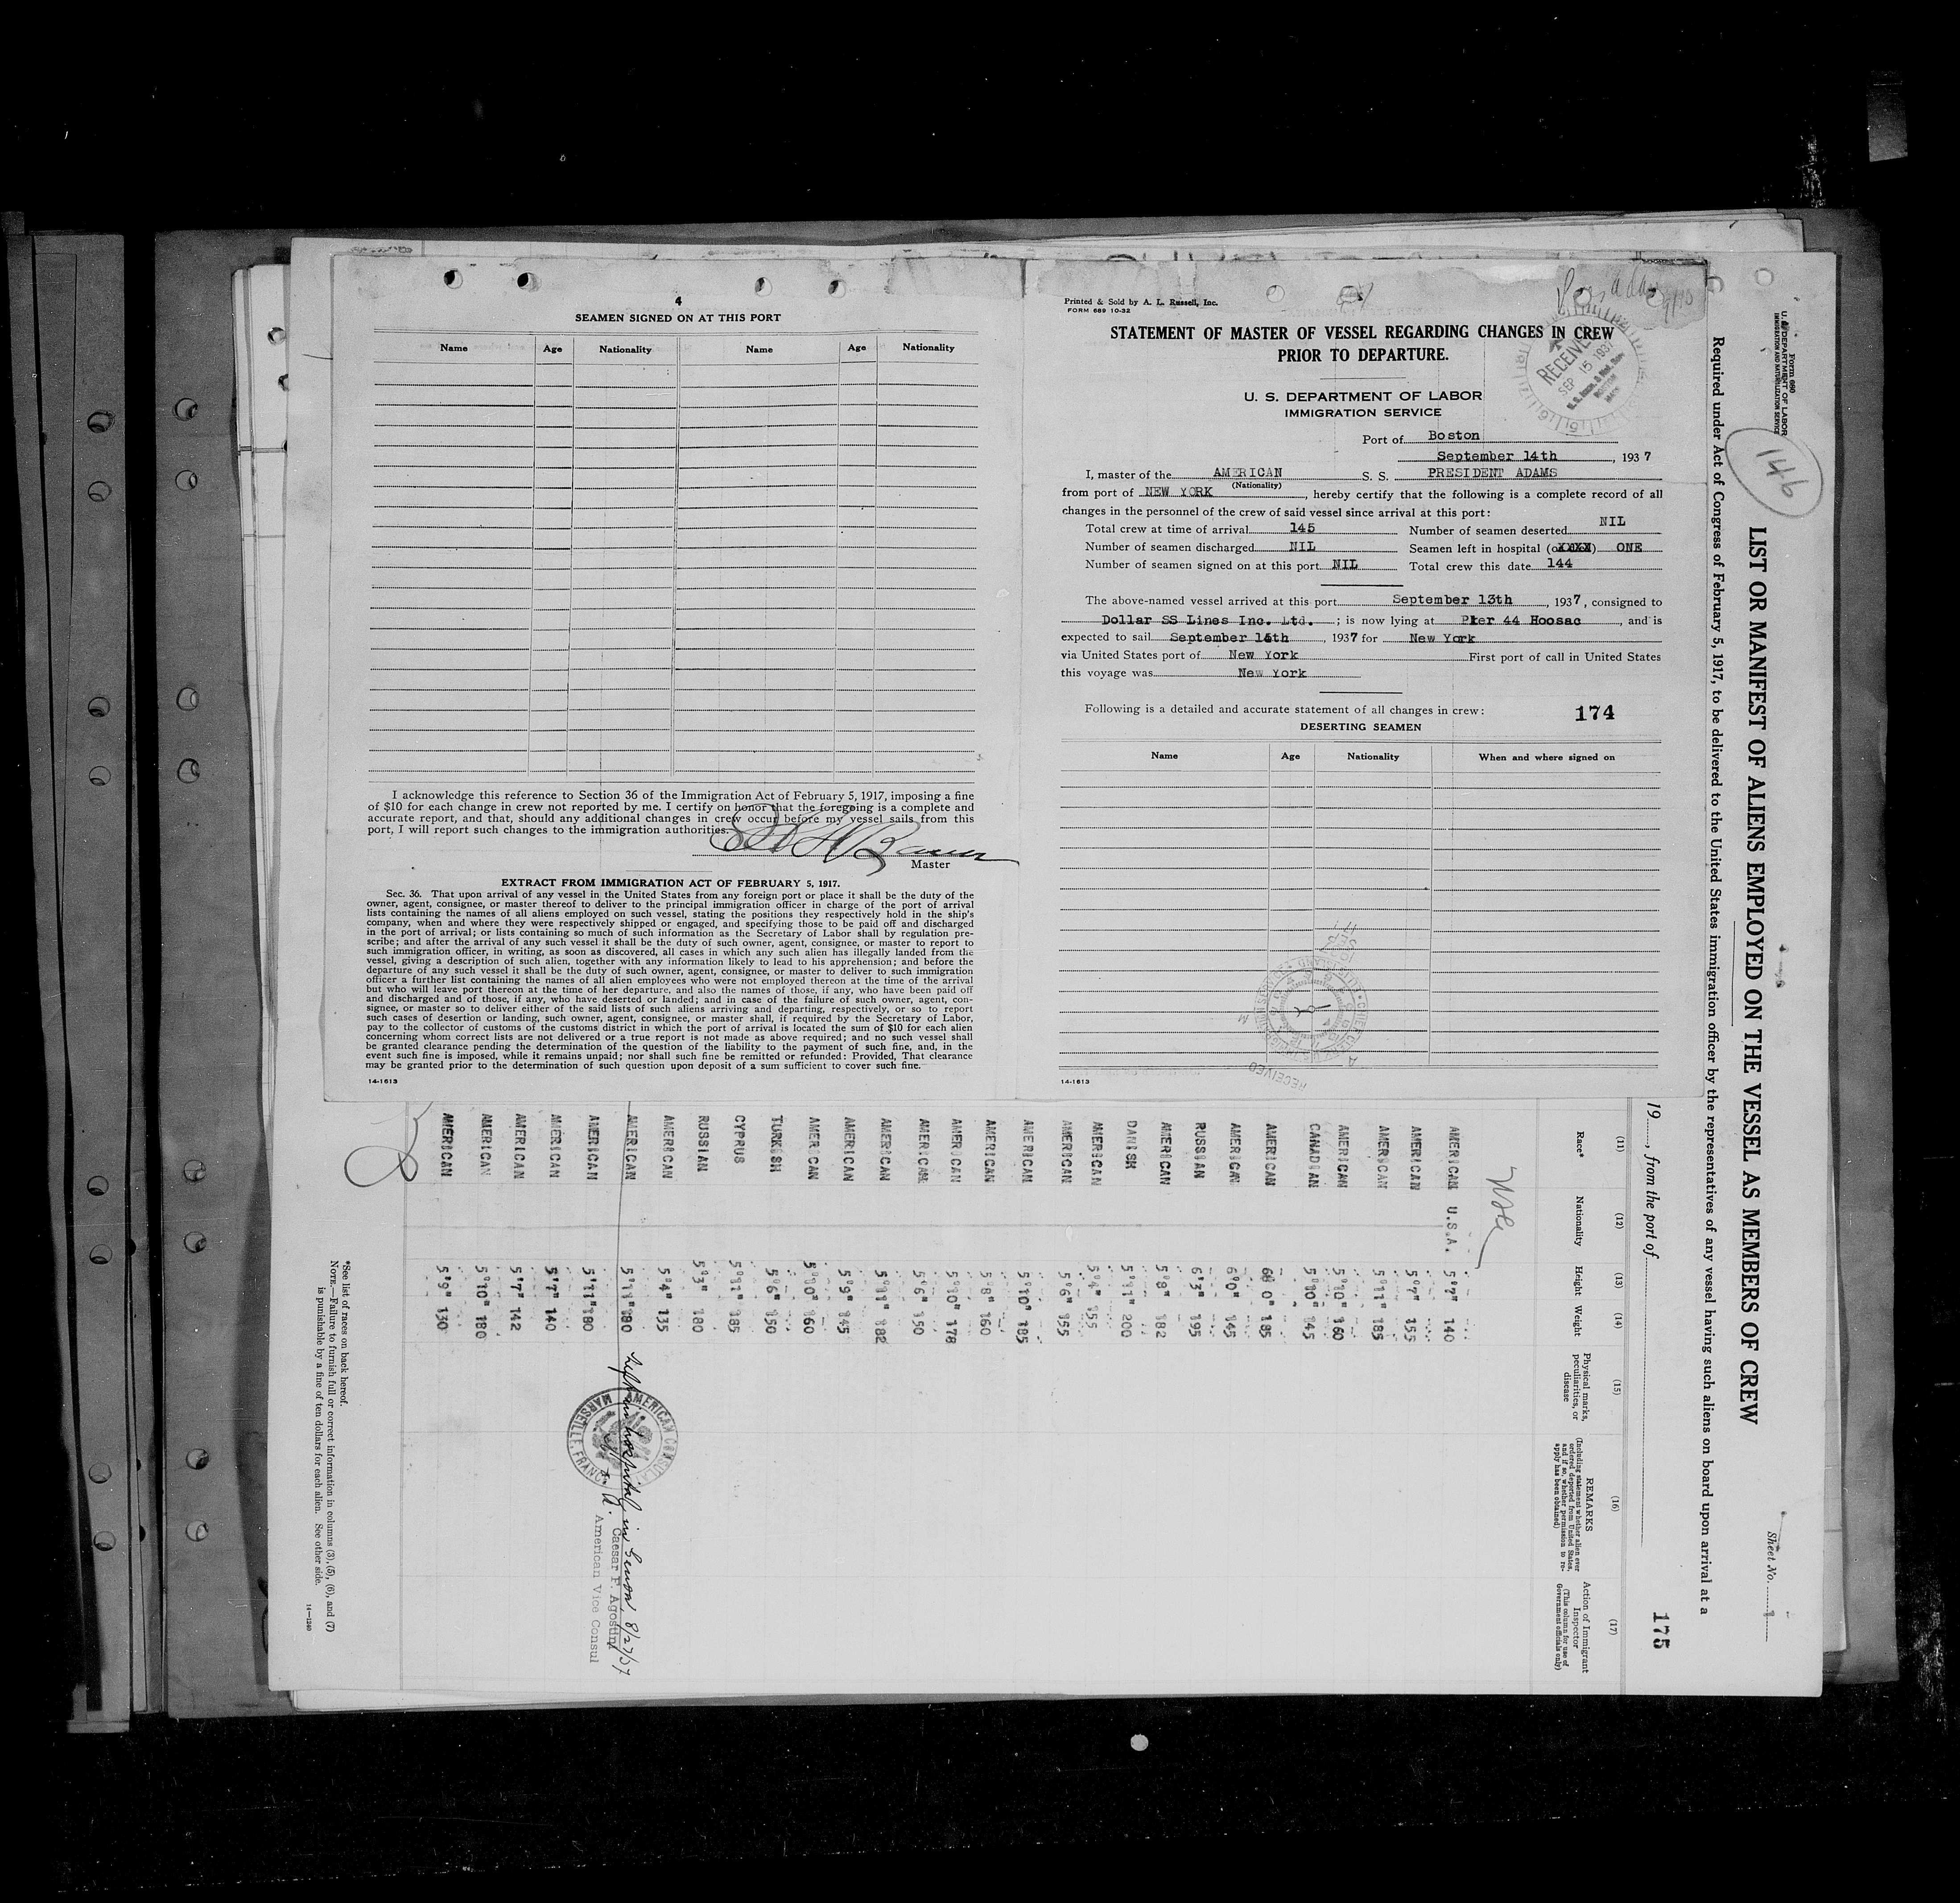 4
SEAMEN SIGNED ON AT THIS PORT
Name Age Nationality Name Age Nationality
I acknowledge this reference to Section 36 of the Immigration Act of February 5, 1917, imposing a fine
of $10 for each change in crew not reported by me. I certify on honor that the foregoing is a complete and
accurate report, and that, should any additional changes in crew occur before my vessel sails from this
port, I will report such changes to the immigration authorities.
Master
EXTRACT FROM IMMIGRATION ACT OF FEBRUARY 5, 1917.
Sec. 36. That upon arrival of any vessel in the United States from any foreign port or place it shall be the duty of the
owner, agent, consignee, or master thereof to deliver to the principal immigration officer in charge of the port of arrival
lists containing the names of all aliens employed on such vessel, stating the positions they respectively hold in the ship's
company, when and where they were respectively shipped or engaged, and specifying those to be paid off and discharged
in the port of arrival; or lists containing so much of such information as the Secretary of Labor shall by regulation pre-
scribe; and after the arrival of any such vessel it shall be the duty of such owner, agent, consignee, or master to report to
such immigration officer, in writing, as soon as discovered, all cases in which any such alien has illegally landed from the
vessel, giving a description of such alien, together with any information likely to lead to his apprehension; and before the
departure of any such vessel it shall be the duty of such owner, agent, consignee, or master to deliver to such immigration
officer a further list containing the names of all alien employees who were not employed thereon at the time of the arrival
but who will leave port thereon at the time of her departure, and also the names of those, if any, who have been paid off
and discharged and of those, if any, who have deserted or landed; and in case of the failure of such owner, agent, con-
signee, or master so to deliver either of the said lists of such aliens arriving and departing, respectively, or so to report
such cases of desertion or landing, such owner, agent, consignee, or master shall, if required by the Secretary of Labor,
pay to the collector of customs of the customs district in which the port of arrival is located the sum of $10 for each alien
concerning whom correct lists are not delivered or a true report is not made as above required; and no such vessel shall
be granted clearance pending the determination of the question of the liability to the payment of such fine, and, in the
event such fine is imposed, while it remains unpaid; nor shall such fine be remitted or refunded: Provided, That clearance
may be granted prior to the determination of such question upon deposit of a sum sufficient to cover such fine.
14-1613
Printed & Sold by A. L. Russell, Inc.
FORM 689 10-32
STATEMENT OF MASTER OF VESSEL REGARDING CHANGES IN CREW
PRIOR TO DEPARTURE.
RECEIVED
SEP 15 1937
BOSTON
MASS.
U. S. DEPARTMENT OF LABOR
IMMIGRATION SERVICE
Port of Boston
September 14th, 1937
I, master of the AMERICAN S. S. PRESIDENT ADAMS
(Nationality)
from port of NEW YORK, hereby certify that the following is a complete record of all
changes in the personnel of the crew of said vessel since arrival at this port:
Total crew at time of arrival 145 Number of seamen deserted NIL
Number of seamen discharged NIL Seamen left in hospital (or XXXX) ONE
Number of seamen signed on at this port NIL Total crew this date 144
The above-named vessel arrived at this port September 13th, 1937, consigned to
Dollar SS Lines Inc. Ltd.; is now lying at Pier 44 Hoosac, and is
expected to sail September 14th, 1937 for New York
via United States port of New York First port of call in United States
this voyage was New York
Following is a detailed and accurate statement of all changes in crew: 174
DESERTING SEAMEN
Name Age Nationality When and where signed on
RECEIVED
14-1613
Form 680
U. S. DEPARTMENT OF LABOR
IMMIGRATION AND NATURALIZATION SERVICE
146
Sheet No. 1
LIST OR MANIFEST OF ALIENS EMPLOYED ON THE VESSEL AS MEMBERS OF CREW
Required under Act of Congress of February 5, 1917, to be delivered to the United States immigration officer by the representatives of any vessel having such aliens on board upon arrival at a
19, from the port of
175
(11) (12) (13) (14) (15) (16) (17)
Race* Nationality Height Weight Physical marks, peculiarities, or disease REMARKS (Including statement whether alien ever ordered deported from United States, and if so, whether permission to re-apply has been obtained) Action of Immigrant Inspector (This column for use of Government officials only)
AMERICAN U.S.A. 5'7" 140
AMERICAN 5'7" 155
AMERICAN 5'11" 185
AMERICAN 5'10" 160
CANADIAN 5'10" 145
AMERICAN 6'0" 185
AMERICAN 6'0" 145
RUSSIAN 6'3" 195
AMERICAN 5'8" 182
DANISH 5'11" 200
AMERICAN 5'4" 155
AMERICAN 5'6" 155
AMERICAN 5'10" 185
AMERICAN 5'8" 160
AMERICAN 5'10" 178
AMERICAN 5'6" 150
AMERICAN 5'11" 182
AMERICAN 5'9" 145
AMERICAN 5'10" 160
TURKISH 5'6" 150
CYPRUS 5'11" 185
RUSSIAN 5'3" 180
AMERICAN 5'4" 135
AMERICAN 5'11" 190 Left in hospital in Genoa, 8/27/37
AMERICAN 5'11" 180
AMERICAN 5'7" 140
AMERICAN 5'7" 142
AMERICAN 5'10" 180
AMERICAN 5'9" 130
AMERICAN CONSULAT
MARSEILLE, FRANCE
Caesar P. Agostini
American Vice Consul
*See list of races on back hereof.
NOTE.—Failure to furnish full or correct information in columns (3), (5), (6), and (7)
is punishable by a fine of ten dollars for each alien. See other side.
14—1240